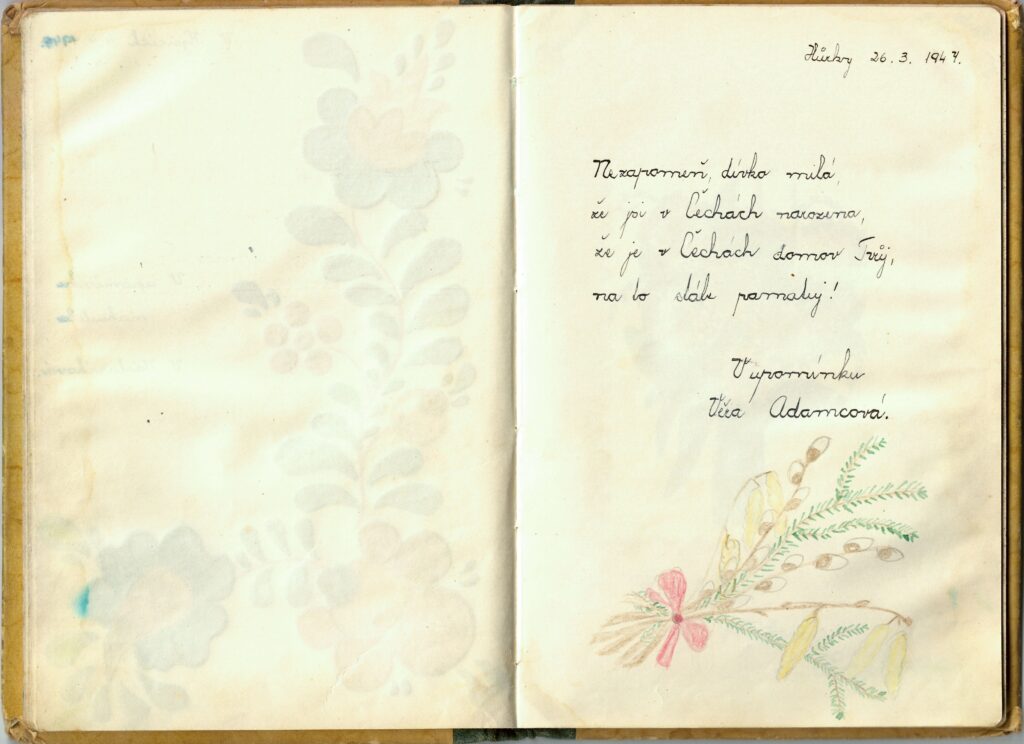 Hůrky 26. 3. 1947.
Nezapomeň, dívko milá,
že jsi v Čechách narozena,
že je v Čechách domov Tvůj,
na to stále pamatuj!
Vzpomínku
Věra Adamcová.